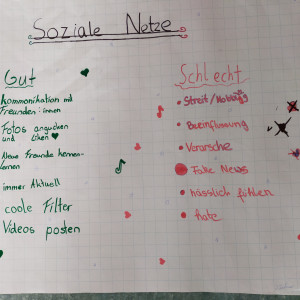 Soziale Netze
Gut
kommonikation mit
Freunden:innen
Fotos angucken
und liken
Neue Freunde kennen-
lernen
immer Aktuell
coole Filter
Videos posten
Schlecht
Streit/Mobbing
Beeinflussung
Verarsche
Fake News
hässlich fühlen
hate